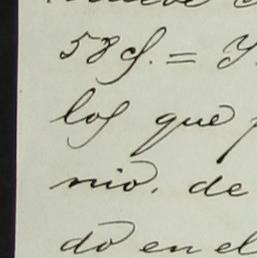 58 f. = Y
los que
nio. de
do en el